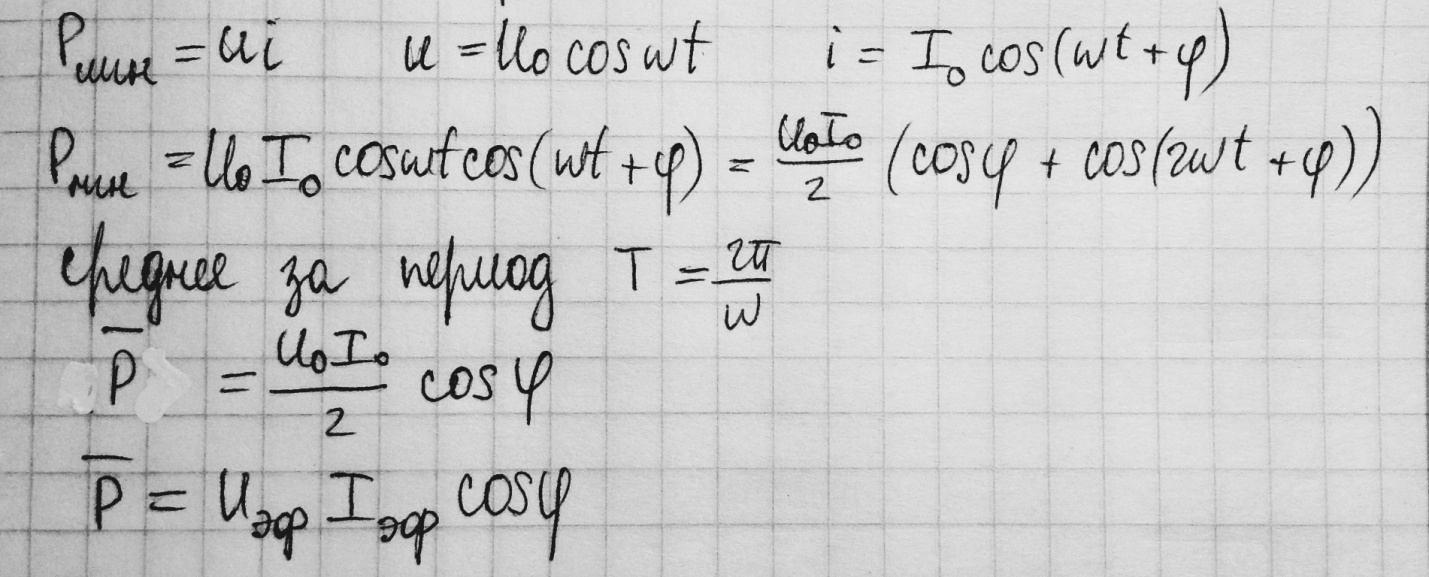 Pмгн = ui u = U₀ cos ωt i = I₀ cos(ωt + φ)
Pмгн = U₀ I₀ cos ωt cos(ωt + φ) = U₀I₀/2 (cos φ + cos(2ωt + φ))
среднее за период T = 2π/ω
P̅ = U₀I₀/2 cos φ
P̅ = Uэф Iэф cos φ